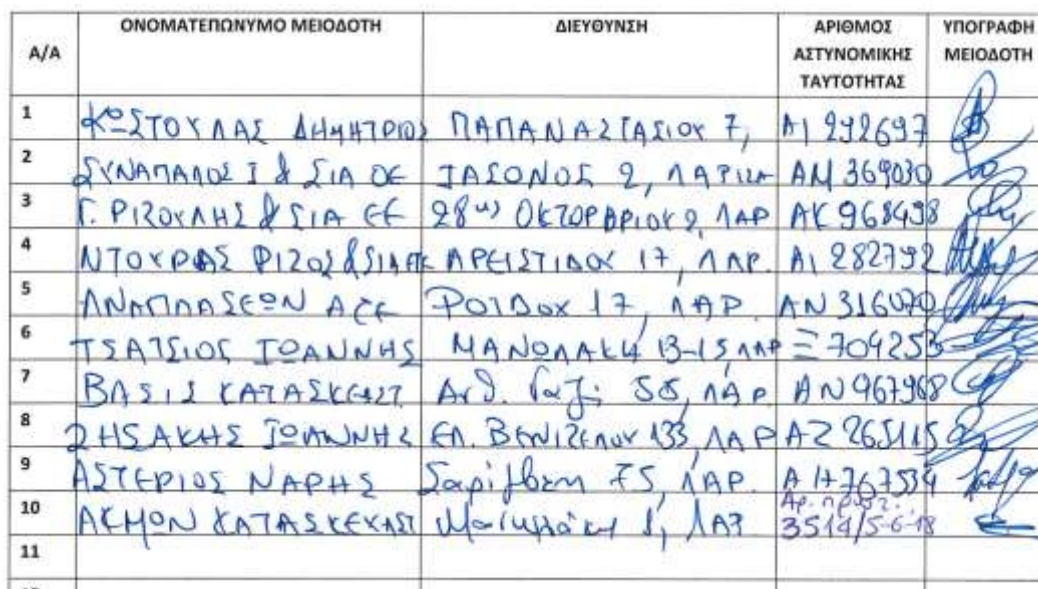 Α/Α ΟΝΟΜΑΤΕΠΩΝΥΜΟ ΜΕΙΟΔΟΤΗ ΔΙΕΥΘΥΝΣΗ ΑΡΙΘΜΟΣ ΑΣΤΥΝΟΜΙΚΗΣ ΤΑΥΤΟΤΗΤΑΣ ΥΠΟΓΡΑΦΗ ΜΕΙΟΔΟΤΗ
1 ΚΩΣΤΟΥΛΑΣ ΔΗΜΗΤΡΙΟΣ ΠΑΠΑΝΑΣΤΑΣΙΟΥ 7, ΑΙ 292697
2 ΣΥΝΑΠΑΛΟΣ Ι & ΣΙΑ ΟΕ ΙΑΣΟΝΟΣ 2, ΛΑΡΙΣΑ ΑΜ 369030
3 Γ. ΡΙΖΟΥΛΗΣ & ΣΙΑ ΕΕ 28ης ΟΚΤΩΒΡΙΟΥ 2, ΛΑΡ ΑΚ 968498
4 ΝΤΟΥΡΑΣ ΡΙΖΟΣ & ΣΙΑ ΕΕ ΑΡΕΙΣΤΙΔΟΥ 17, ΛΑΡ. ΑΙ 282792
5 ΑΝΑΠΛΑΣΕΩΝ ΑΤΕ ΡΟΙΔΟΥ 17, ΛΑΡ. ΑΝ 316070
6 ΤΣΑΤΣΙΟΣ ΙΩΑΝΝΗΣ ΜΑΝΩΛΑΚΗ 13-15 ΛΑΡ Ξ 709253
7 ΒΑΣΙΣ ΚΑΤΑΣΚΕΥΑΣΤ Ανθ. Γαζή 58, ΛΑΡ ΑΝ 967968
8 ΖΗΣΑΚΗΣ ΙΩΑΝΝΗΣ ΕΛ. ΒΕΝΙΖΕΛΟΥ 133, ΛΑΡ ΑΖ 265115
9 ΑΣΤΕΡΙΟΣ ΝΑΡΗΣ 75, ΛΑΡ. ΑΗ 767534
10 ΑΚΜΩΝ ΚΑΤΑΣΚΕΥΑΣΤ 8, ΛΑΡ Αρ. πρωτ. 3514/5-6-18
11